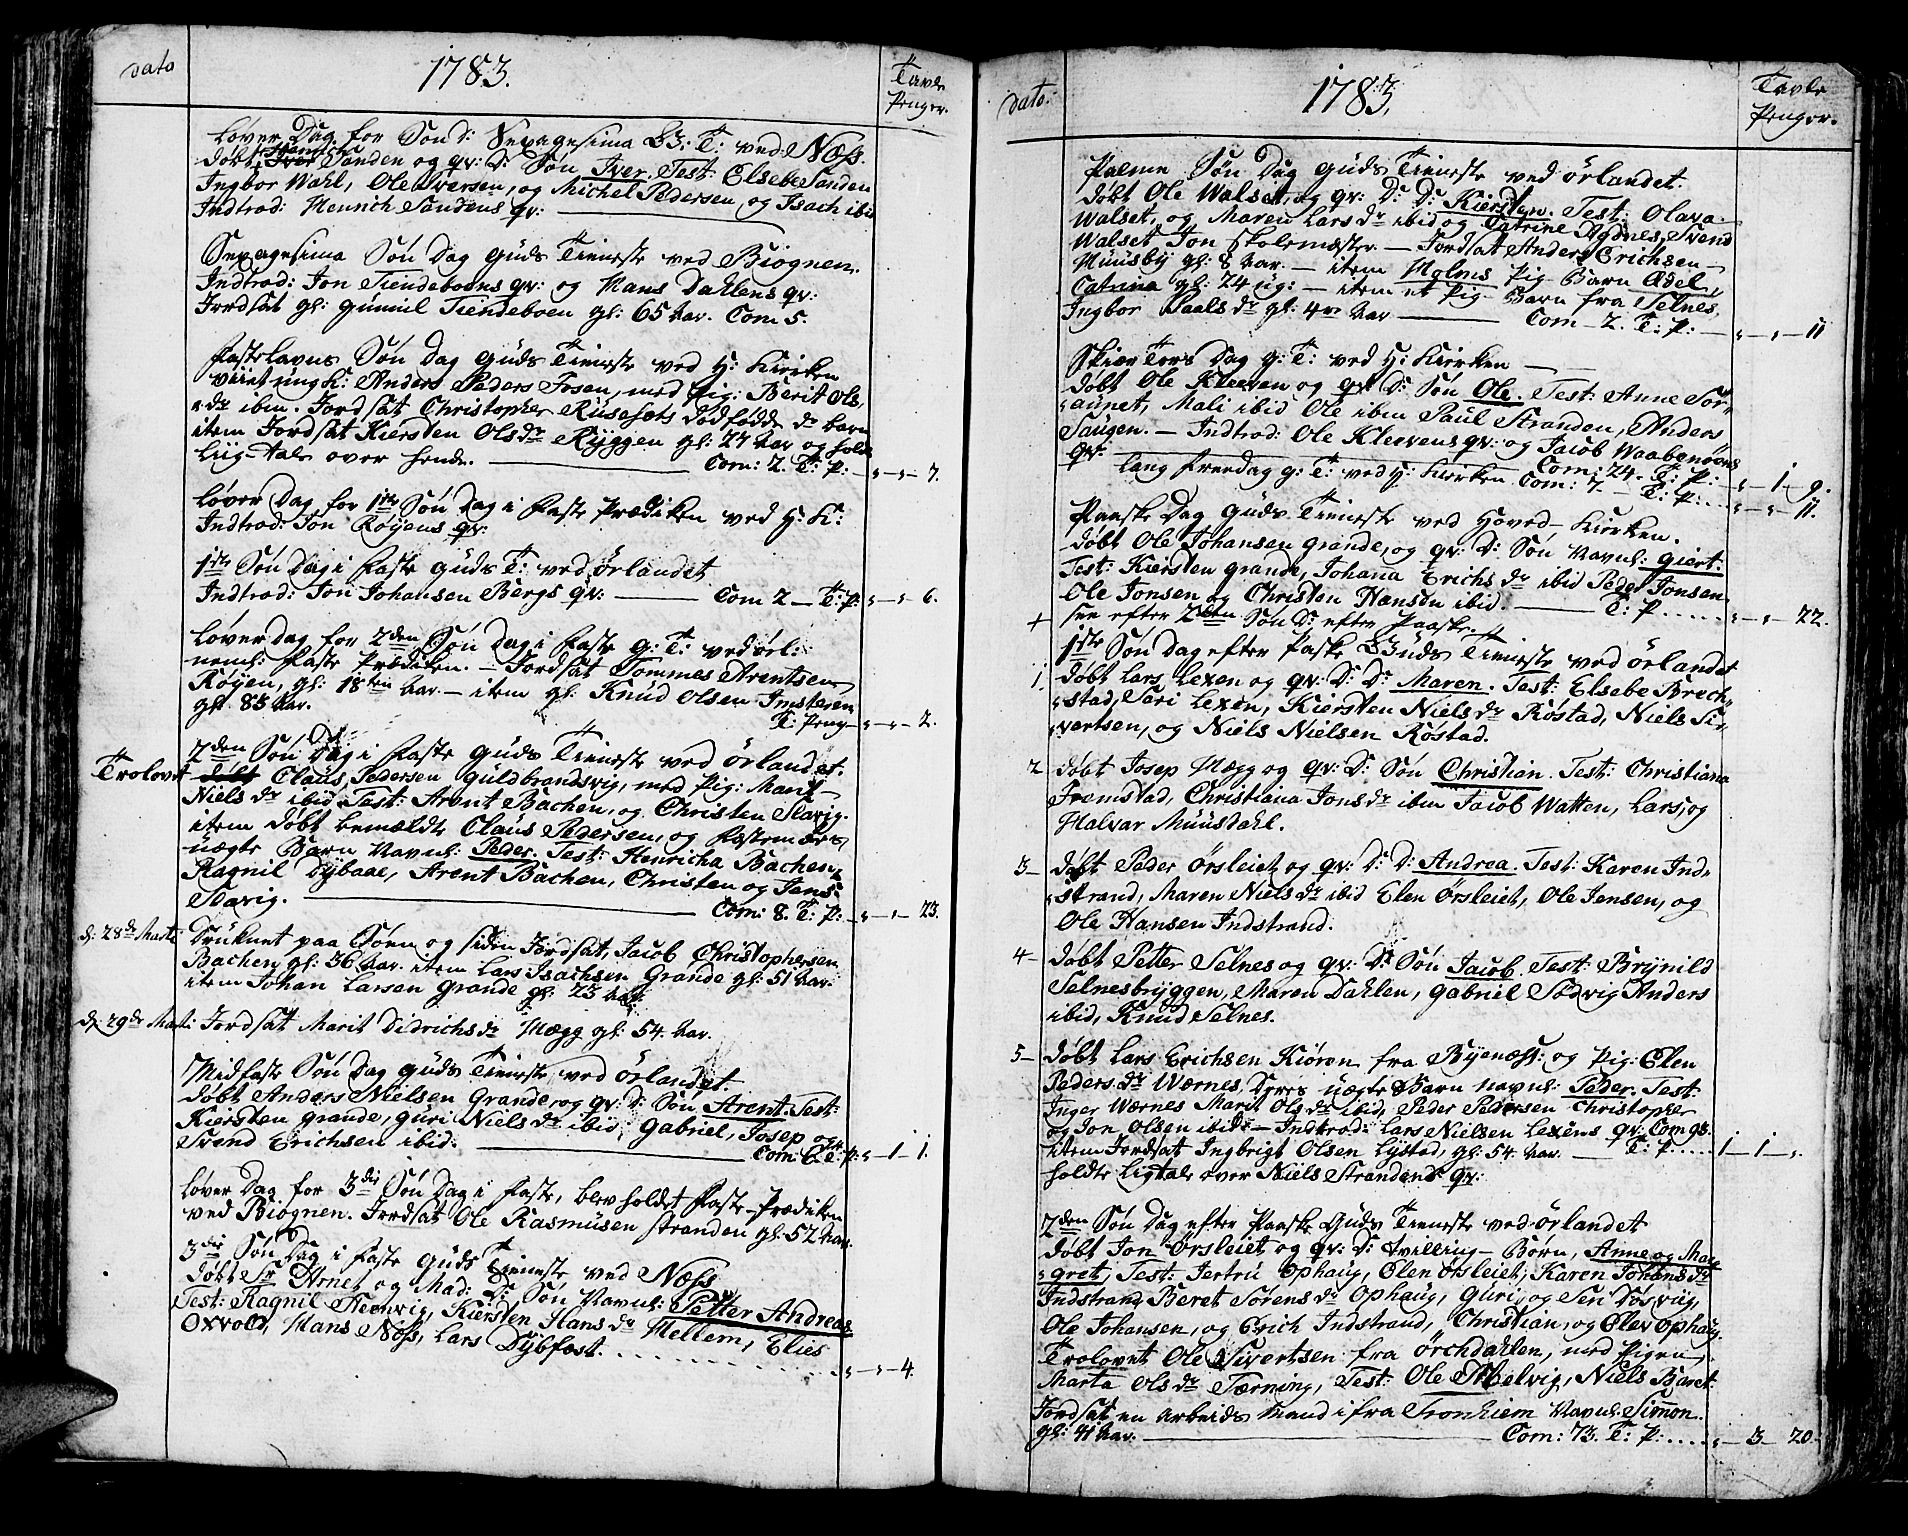 dato 1783. Tavle
Penger.
Løver Dag for Sønd: Sexagesima G: T: ved Næss.
døbt Henrich Sanden og qv: D: Søn Iver. Test: Elsebe Sanden
Ingbor Wahl, Ole Iversen, og Michel Pedersen, og Isach ibid
Indtrod: Henrich Sandens qv:
Sexagesima Søn Dag Guds Tieneste ved Biognen.
Indtrod: Jon Tiendeboens qv: og Hans Dahlens qv:
Jordsat gl: Gunnil Tiendeboen gl: 65 Aar. Com 5.
Fastelavns Søn Dag Guds Tieneste ved H: Kirken
viiet ung K: Anders Peders Fosen, med Pig: Berit Ols
dr ibm. Jordsat Christopher Rüsesets dødfødde dr barn
item Jordsat Kiersten Olsdr Ryggen gl: 27 Aar og holdt
Liig-Tale over hende. Com: 2. T: P: " - " - 7.
Løver Dag for 1ste Søn Dag i Faste Prædiken ved H: K:
Indtrod: Jon Røyens qv:
1ste Søn Dag i Faste Guds T: ved Ørlandet
Indtrod: Jon Johansen Bergs qv: Com 2 - T: P: " - " - 6.
Løver dag for 2den Søn Dag i Faste G: T: ved Ørl:
neml: Faste Prædiken. - Jordsat Tommes Arentsen
Røyen, gl: 18ten Aar. - item gl: Knud Olsen Imsteren
gl: 85 Aar. T: Peng - " - " - 2.
2den Søn Dag i Faste Guds Tieneste ved Ørlandet.
Trolovet døbt Claus Pedersen Guldbrandsvig, med Pig: Marit
Nielsdr ibid, Test: Arent Bachen, og Christen Slavig.
item døbt bemældte Claus Pedersen, og Fæstemøes
uægte Barn Navnl: Peder. Test: Henricha Bachen,
Ragnil Dybaae, Arent Bachen, Christen og Jens
Slavig. Com: 8. T: P: " - " - 23.
d: 28de Marti Druknet paa Søen og siden Jordsat, Jacob Christophersen
Bachen gl: 36 Aar. item Lars Isachsen Grande gl: 51 Aar.
item Johan Larsen Grande gl: 23 Aar.
d: 29de Marti: Jordsat Marit Didrichsdr Mægg gl: 54. Aar.
Midfaste Søn Dag Guds Tieneste ved Ørlandet
døbt Anders Nielsen Grande, og qv: D: Søn Arent. Test:
Kiersten Grande, Guri Nielsdr ibid, Gabriel, Josep og
Svend Erichsen ibid. Com: 6 T: P: " - 1 - 1.
Løver Dag for 3die Søn Dag i Faste, blev holdet Faste-Prædiken
ved Biognen. Jordsat Ole Rasmusen Stranden gl: 52 Aar.
3die Søn Dag i Faste Guds Tieneste ved Næss
døbt Sr Hornet og Mad: D: Søn Navnl: Petter Andreas
Test: Ragnil Flenvig, Kiersten Hansdr Mellem, Elies
Oxvold, Hans Næss, Lars Dybfest. " - " - 4.
dato: 1783. Tavle
Penger.
Palme Søn Dag Guds Tieneste ved Ørlandet.
døbt Ole Walset, og qv: D: D: Kiersten. Test: Olava
Walset, og Maren Larsdr ibid og Catrine Agdnes, Svend
Walset Jon Skolemæster. - Jordsat Anders Erichsen
Muusby gl: 8 Aar. - item Holms Pig Barn Adel
Catrina gl: 24 ug: - item et Pig-Barn fra Selnes,
Ingbor Paalsdr gl: 4re Aar Com - 2. T: P: - " - " - 11
Skier Tors Dag G: T: ved H: Kirken
døbt Ole Kleeven og qv: D: Søn Ole. Test: Anne Sør-
aunet, Mali ibid Ole ibm Paul Stranden, Anders
Saugen. - Indtrod: Ole Kleevens qv: og Jacob Waabenøens
qv: Com: 24. T: P: " - 1 - 9.
Lang Freedag G: T: ved H: Kirken Com: 7. - T: P: . . " - " - 11.
Paaske Dag Guds Tieneste ved Hoved-Kirken.
døbt Ole Johansen Grande, og qv: D: Søn Navnl: Giert.
Test: Kiersten Grande, Johana Erichsdr ibid Peder Jonsen
Ole Jonsen og Christen Hansen ibid. T: P . . . . . " - " - 22.
+ see efter 2den Søn D: efter Paaske
1ste Søn Dag efter Paske Guds Tieneste ved Ørlandet
1. døbt Lars Lexen og qv: D: Dr Maren. Test: Elsebe Brech-
stad, Sari Lexen, Kiersten Nielsdr Røstad, Niels Si-
vertsen, og Niels Nielsen Røstad.
2 døbt Josep Mægg og qv: D: Søn Christian. Test: Christiana
Fremstad, Christiana Jonsdr ibm Jacob Watten, Lars, og
Halvar Muusdahl.
3 - døbt Peder Ørsleiet og qv: D: D: Andrea. Test: Karen Ind-
strand, Maren Nielsdr ibid Elen Ørsleiet, Ole Jensen, og
Ole Hansen Indstrand.
4 - døbt Petter Selnes og qv: D: Søn Jacob. Test: Brynild
Selnesbryggen, Maren Dahlen, Gabriel Sødvig Anders
ibid, Knud Selnes.
5 - døbt Lars Erichsen Kiøren fra Byenæss: og Pig: Elen
Pedersdr Wærnes, Deres uægte Barn navnl: Peder. Test:
Inger Wærnes Marit Olsdr ibid, Peder Pedersen Christopher
og Jon Olsen ibid. - Indtrod: Lars Nielsen Lexens qv: Com 98.
item Jordsat Ingbrigt Olsen Lystad, gl: 54. Aar. - T: P. . . . . 1 - 1 - ".
holdte Ligtale over Niels Strandens qv:
2den Søn Dag efter Paaske Guds Tieneste ved Ørlandet
døbt Jon Ørsleiet og qv: D: tvilling-Børn, Anne og Mar-
gret, Test: Jertrü Ophaug, Elen Ørsleiet, Karen Johansdr
Indstrand, Beret Sørensdr Ophaug, Guri, og Seri Døsvüg,
Ole Johansen, og Erich Indstrand, Christian, og Elev Ophaug.
Trolovet Ole Sivertsen fra Orchdahlen, med Pigen
Marta Olsdr Tærning, Test: Ole Melvig, Niels Baret.
Jordsat en Arbeids Mand ifra Tronhiem Navnl: Simon.
gl: 41 Aar. Com: 73. T: P: . . . . " - 3 - 20.